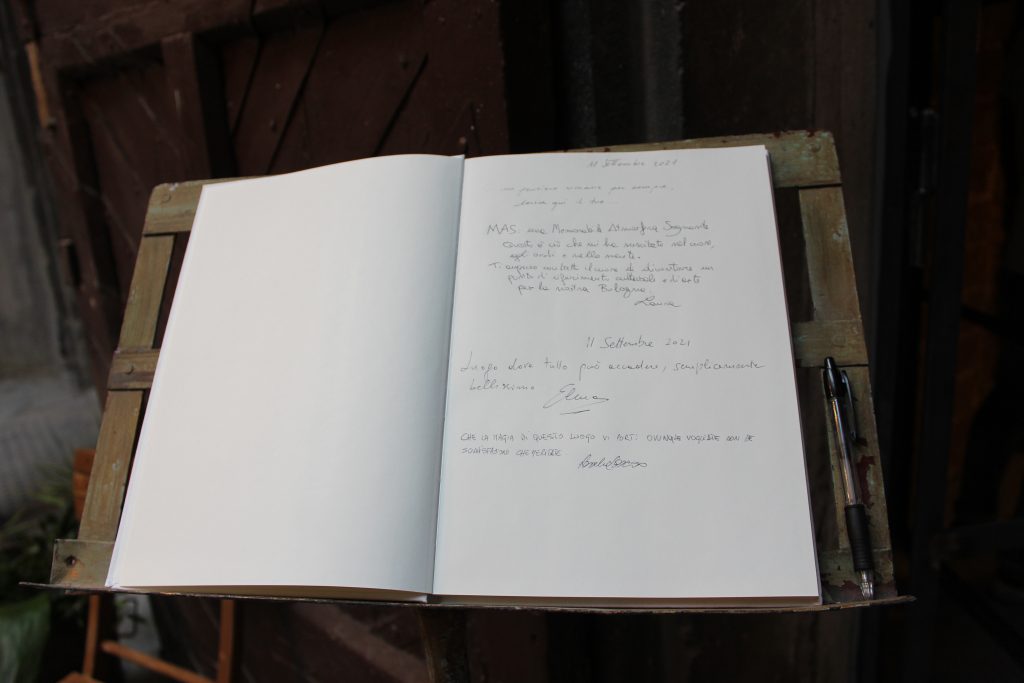 11 Settembre 2021
... un pensiero rimane per sempre,
lascia qui il tuo...
MAS: una Memorabile Atmosfera Sognante
Questo è ciò che mi ha suscitato nel cuore,
agli occhi e nella mente.
Ti auguro con tutto il cuore di diventare un
punto di riferimento culturale e d'arte
per la nostra Bologna.
Laura
11 Settembre 2021
Luogo dove tutto può accadere, semplicemente
bellissimo
Elena
CHE LA MAGIA DI QUESTO LUOGO VI PORTI OVUNQUE VOGLIATE CON LE
SODDISFAZIONI CHE MERITATE